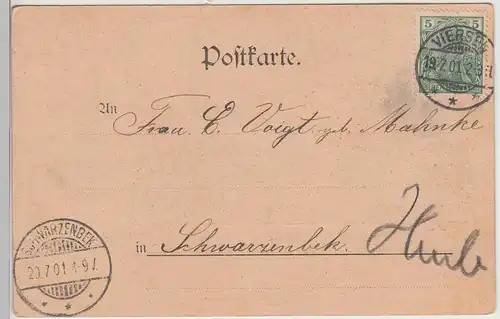 5
VIERSEN
19.7.01
Postkarte.
An
Frau C. Voigt geb. Mahnke
in Schwarzenbek.
SCHWARZENBEK
20.7.01 8-9V.